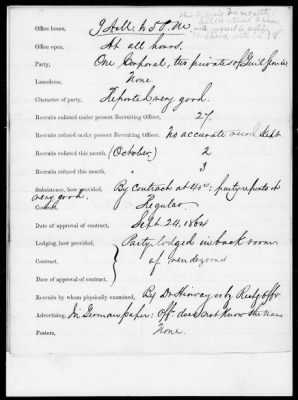 Office hours, 9 A.M. to 5 P.M.
Office open, At all hours.
Party, One Corporal, two privates of Gen'l Service
Laundress, None
Character of party, Reported very good.
Recruits enlisted under present Recruiting Officer, 27.
Recruits refused under present Recruiting Officer, No accurate record kept
Recruits enlisted this month, (October.) 2
Recruits refused this month, " 3
Subsistence, how provided, By contract at 40c: party reports it
very good.
Contract, Regular.
Date of approval of contract, Sept. 24, 1864
Lodging, how provided, Party lodged in back room
Contract, of rendezvous
Date of approval of contract,
Recruits by whom physically examined, By Dr or by Rectg Offr
Advertising, In German paper: Off. does not know the name
Posters, None.